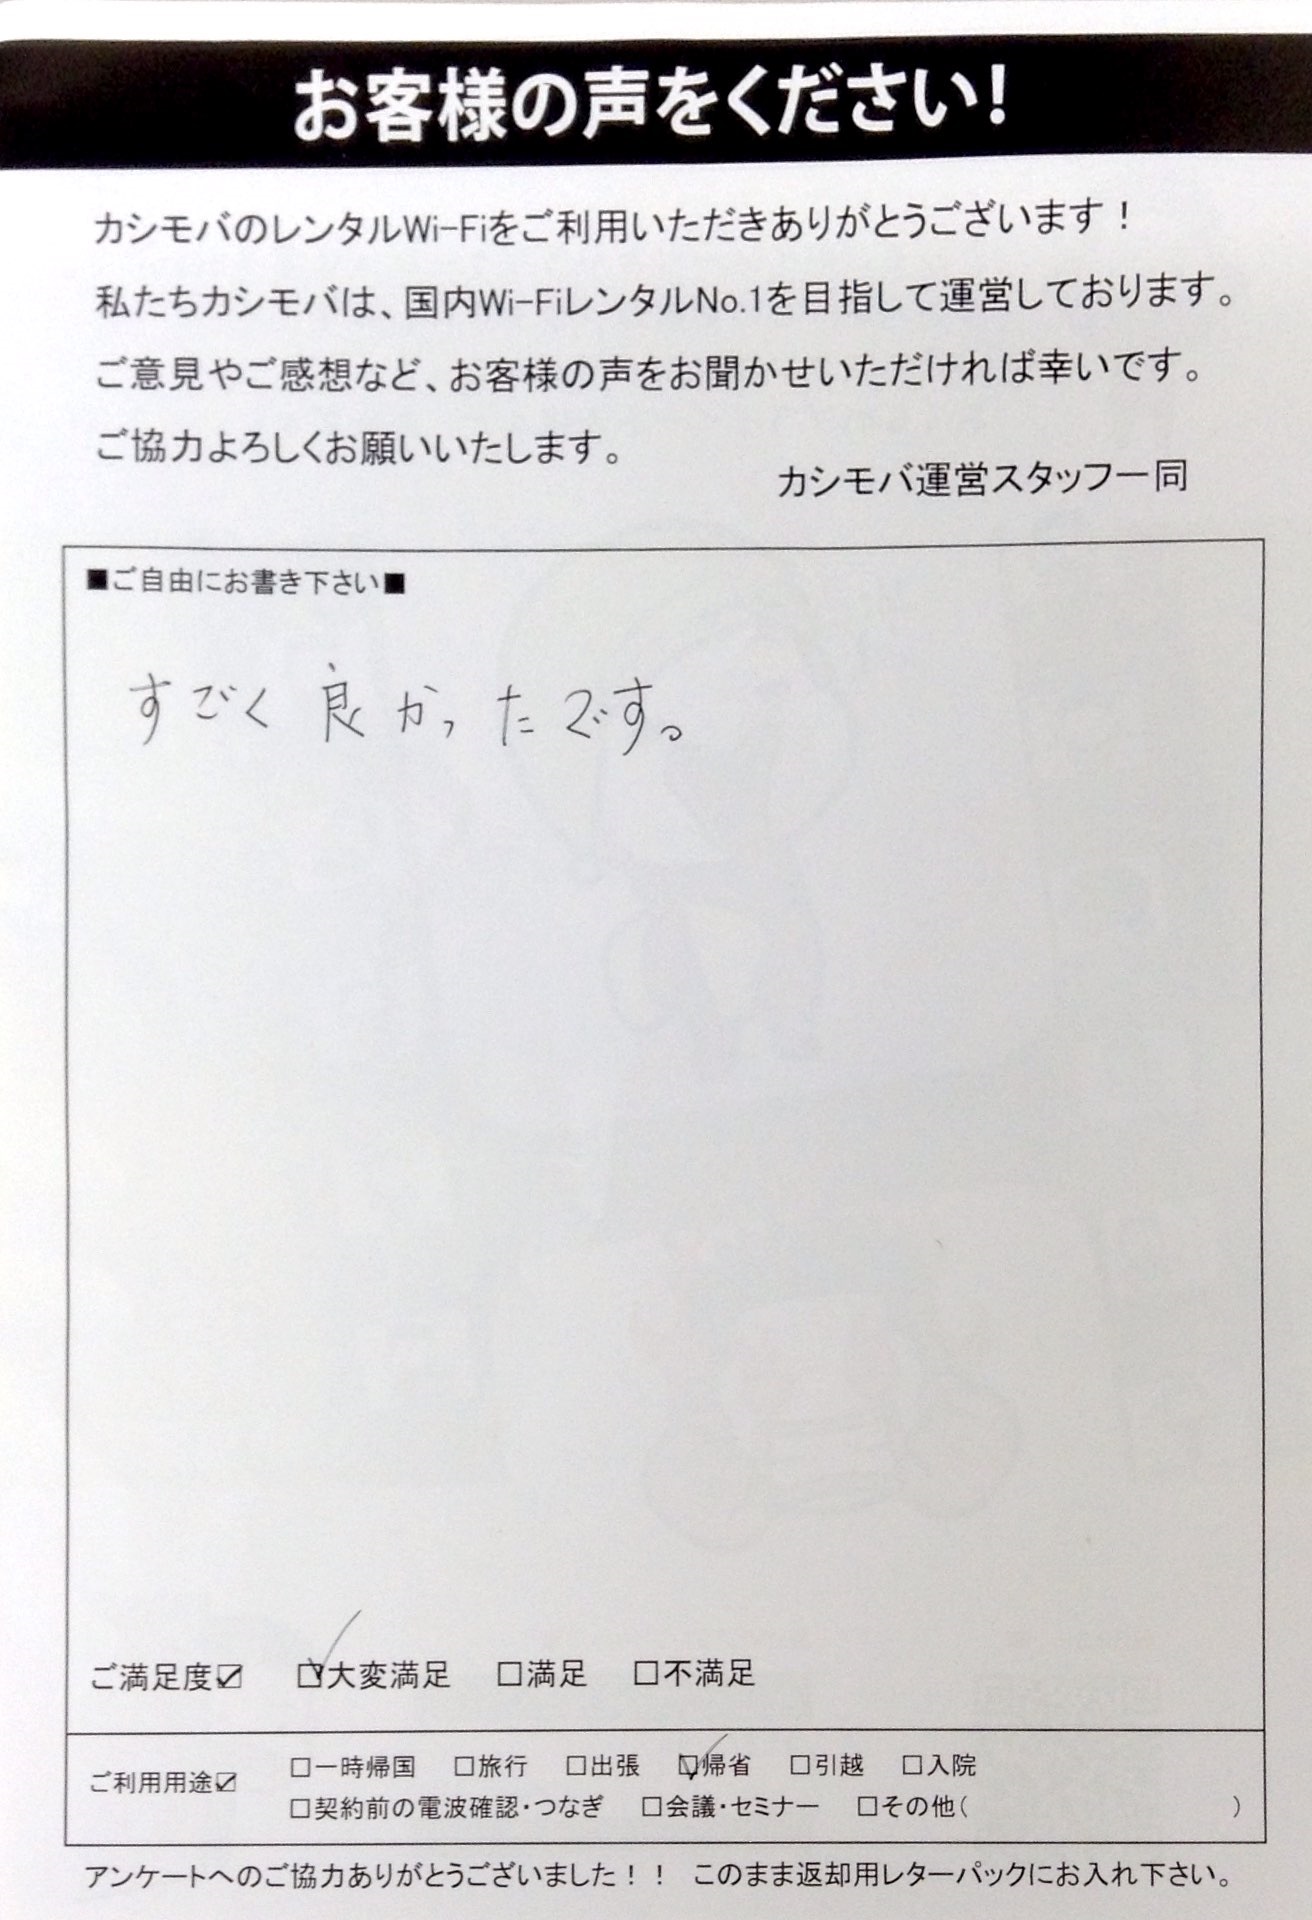 お客様の声をください!
カシモバのレンタルWi-Fiをご利用いただきありがとうございます！
私たちカシモバは、国内Wi-FiレンタルNo.1を目指して運営しております。
ご意見やご感想など、お客様の声をお聞かせいただければ幸いです。
ご協力よろしくお願いいたします。
カシモバ運営スタッフ一同
■ご自由にお書き下さい■
すごく良かったです。
ご満足度☑ ☑大変満足 □満足 □不満足
ご利用用途☑ □一時帰国 □旅行 □出張 ☑帰省 □引越 □入院
□契約前の電波確認・つなぎ □会議・セミナー □その他( )
アンケートへのご協力ありがとうございました！！ このまま返却用レターパックにお入れ下さい。